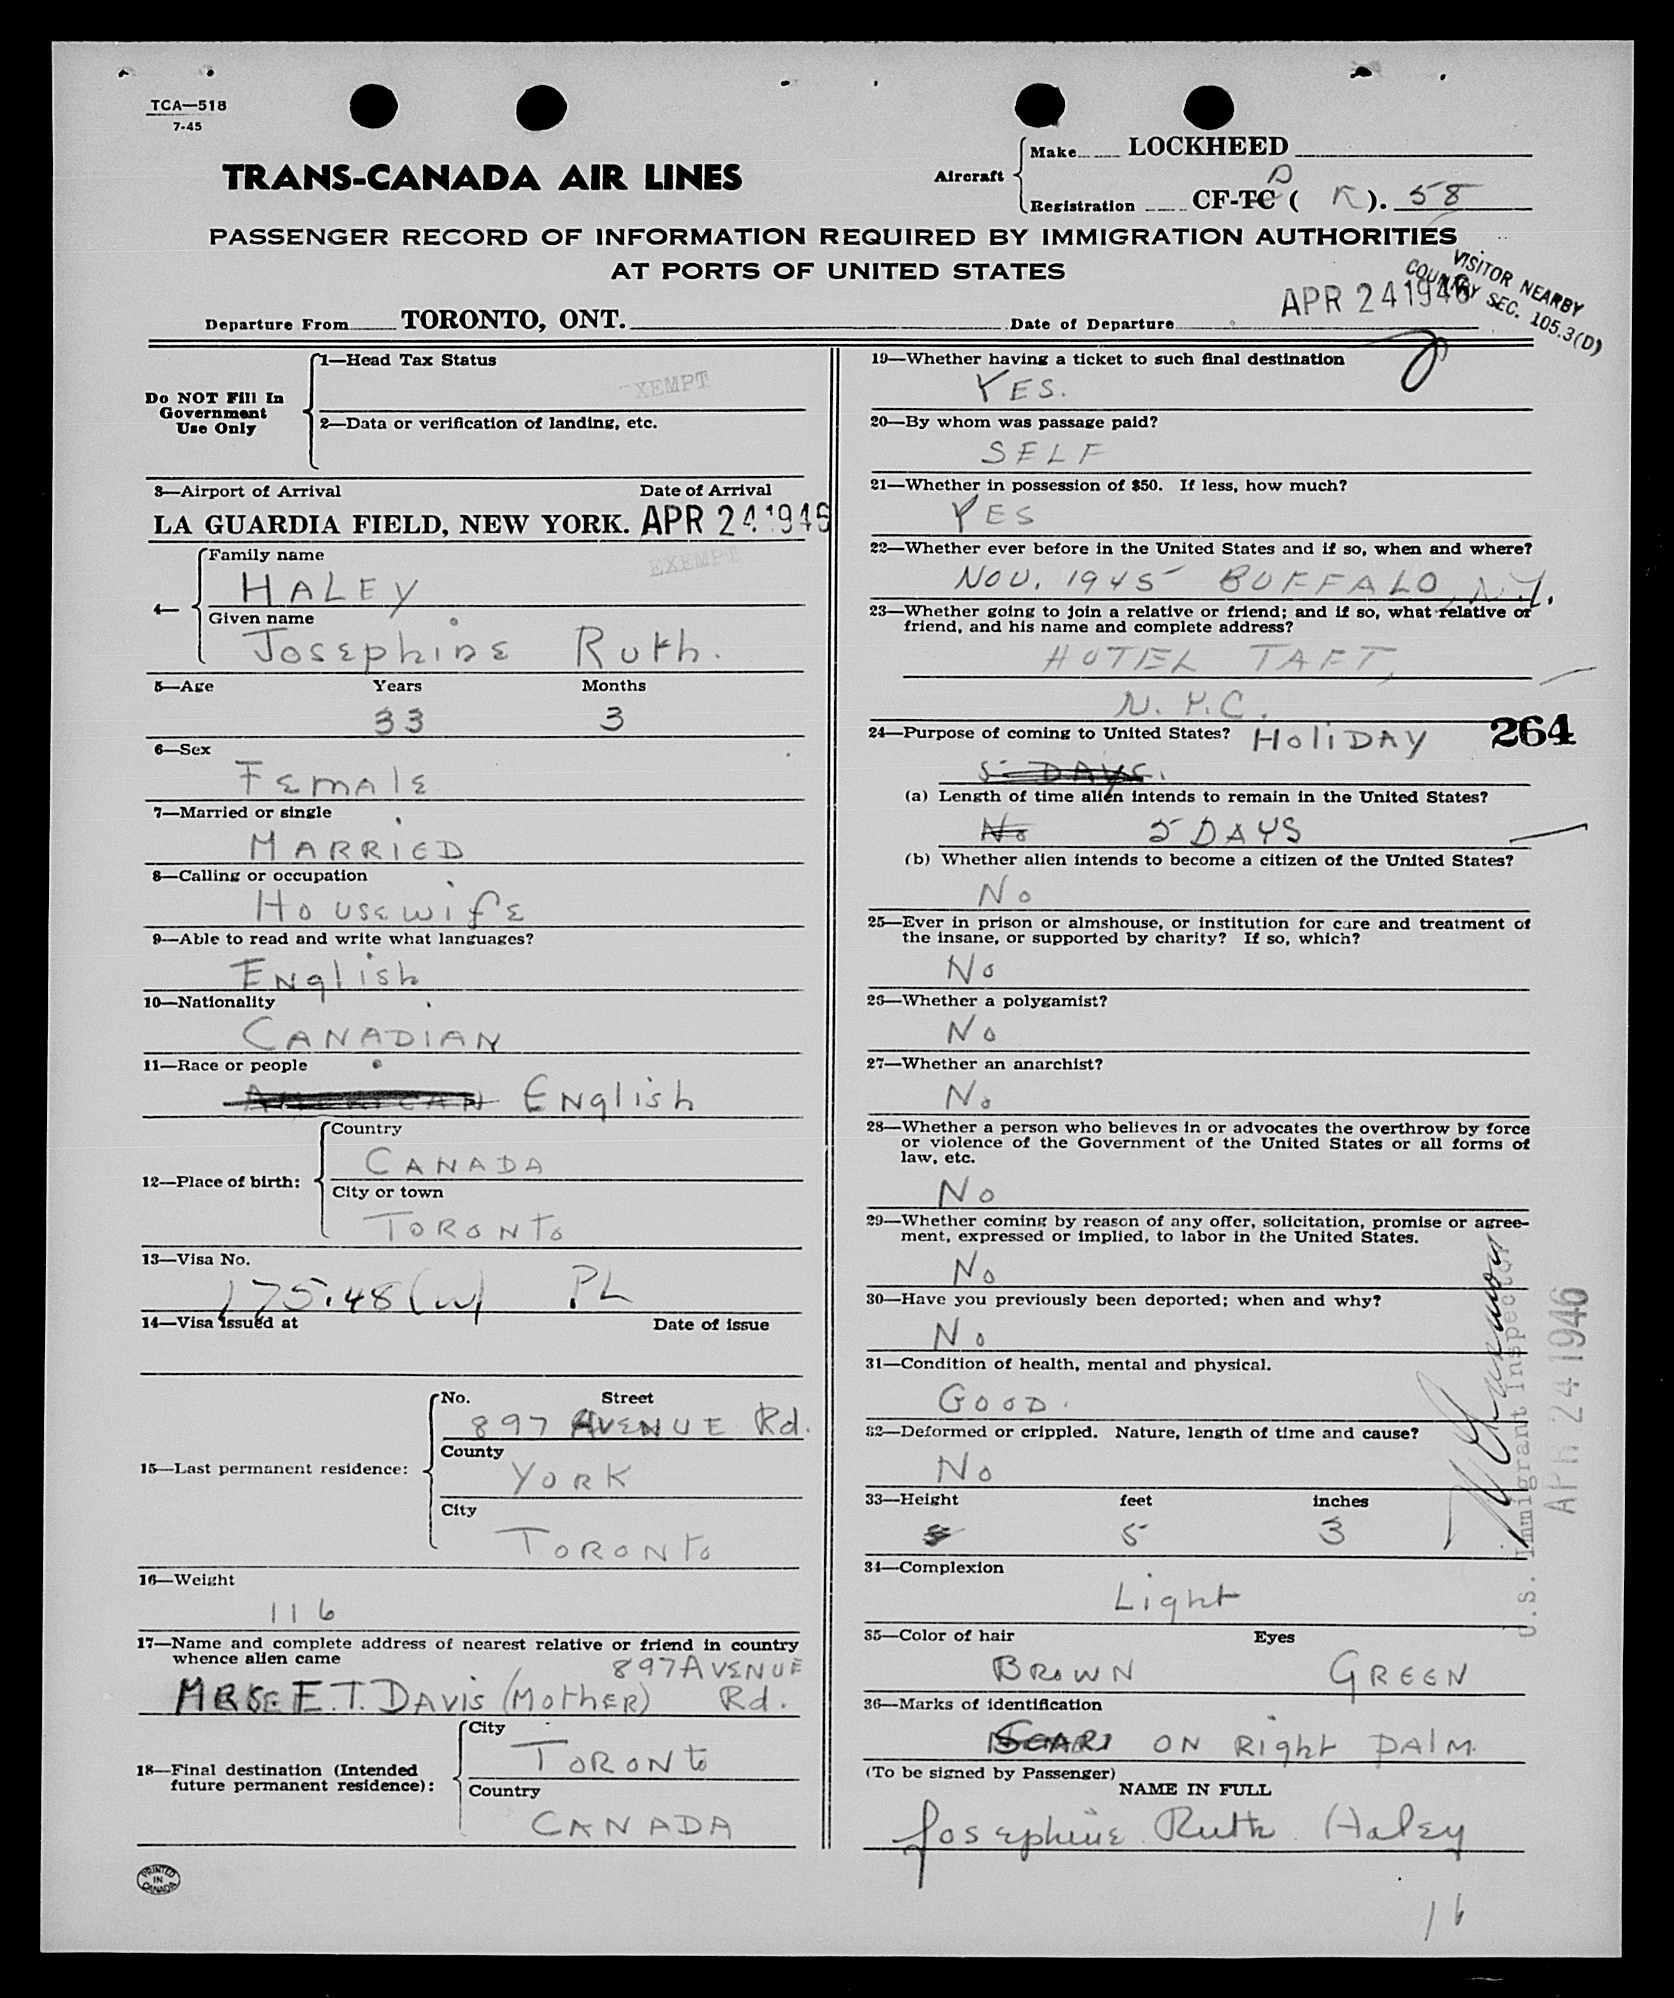 TCA—518
7-45
TRANS-CANADA AIR LINES
Aircraft
Make LOCKHEED
D
Registration CF-TC ( K ). 58
PASSENGER RECORD OF INFORMATION REQUIRED BY IMMIGRATION AUTHORITIES
AT PORTS OF UNITED STATES
VISITOR NEARBY
COUNTRY SEC. 105.3(D)
Departure From TORONTO, ONT. Date of Departure APR 24 1946
Do NOT Fill In
Government
Use Only
1—Head Tax Status
EXEMPT
2—Data or verification of landing, etc.
3—Airport of Arrival Date of Arrival
LA GUARDIA FIELD, NEW YORK. APR 24 1946
EXEMPT
4—
Family name
HALEY
Given name
Josephine Ruth.
5—Age Years Months
33 3
6—Sex
Female
7—Married or single
MARRIED
8—Calling or occupation
Housewife
9—Able to read and write what languages?
English
10—Nationality
CANADIAN
11—Race or people
AMERICAN English
12—Place of birth:
Country
CANADA
City or town
TORONTO
13—Visa No.
175.48(w) PL
14—Visa issued at Date of issue
15—Last permanent residence:
No. Street
897 AVENUE Rd.
County
YORK
City
TORONTO
16—Weight
116
17—Name and complete address of nearest relative or friend in country
whence alien came
897 AVENUE
MRS. E.T. DAVIS (MOTHER) Rd.
18—Final destination (Intended
future permanent residence):
City
TORONTO
Country
CANADA
PRINTED
IN
CANADA
19—Whether having a ticket to such final destination
YES.
20—By whom was passage paid?
SELF
21—Whether in possession of $50. If less, how much?
YES
22—Whether ever before in the United States and if so, when and where?
NOV. 1945 BUFFALO, N.Y.
23—Whether going to join a relative or friend; and if so, what relative or
friend, and his name and complete address?
HOTEL TAFT,
N.Y.C.
24—Purpose of coming to United States? HOLIDAY
264
5 DAYS.
(a) Length of time alien intends to remain in the United States?
No 5 DAYS
(b) Whether alien intends to become a citizen of the United States?
No
25—Ever in prison or almshouse, or institution for care and treatment of
the insane, or supported by charity? If so, which?
No
26—Whether a polygamist?
No
27—Whether an anarchist?
No
28—Whether a person who believes in or advocates the overthrow by force
or violence of the Government of the United States or all forms of
law, etc.
No
29—Whether coming by reason of any offer, solicitation, promise or agree-
ment, expressed or implied, to labor in the United States.
No
30—Have you previously been deported; when and why?
No
31—Condition of health, mental and physical.
GOOD.
32—Deformed or crippled. Nature, length of time and cause?
No
33—Height feet inches
5 3
34—Complexion
Light
35—Color of hair Eyes
BROWN GREEN
36—Marks of identification
SCAR ON Right PALM.
(To be signed by Passenger)
NAME IN FULL
Josephine Ruth Haley
U.S. Immigrant Inspector
APR 24 1946
16